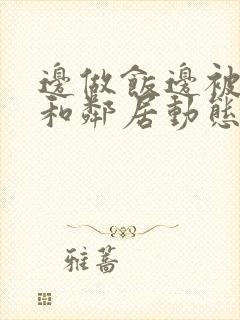 邊做飯邊被
和鄰居動態
雅蒿